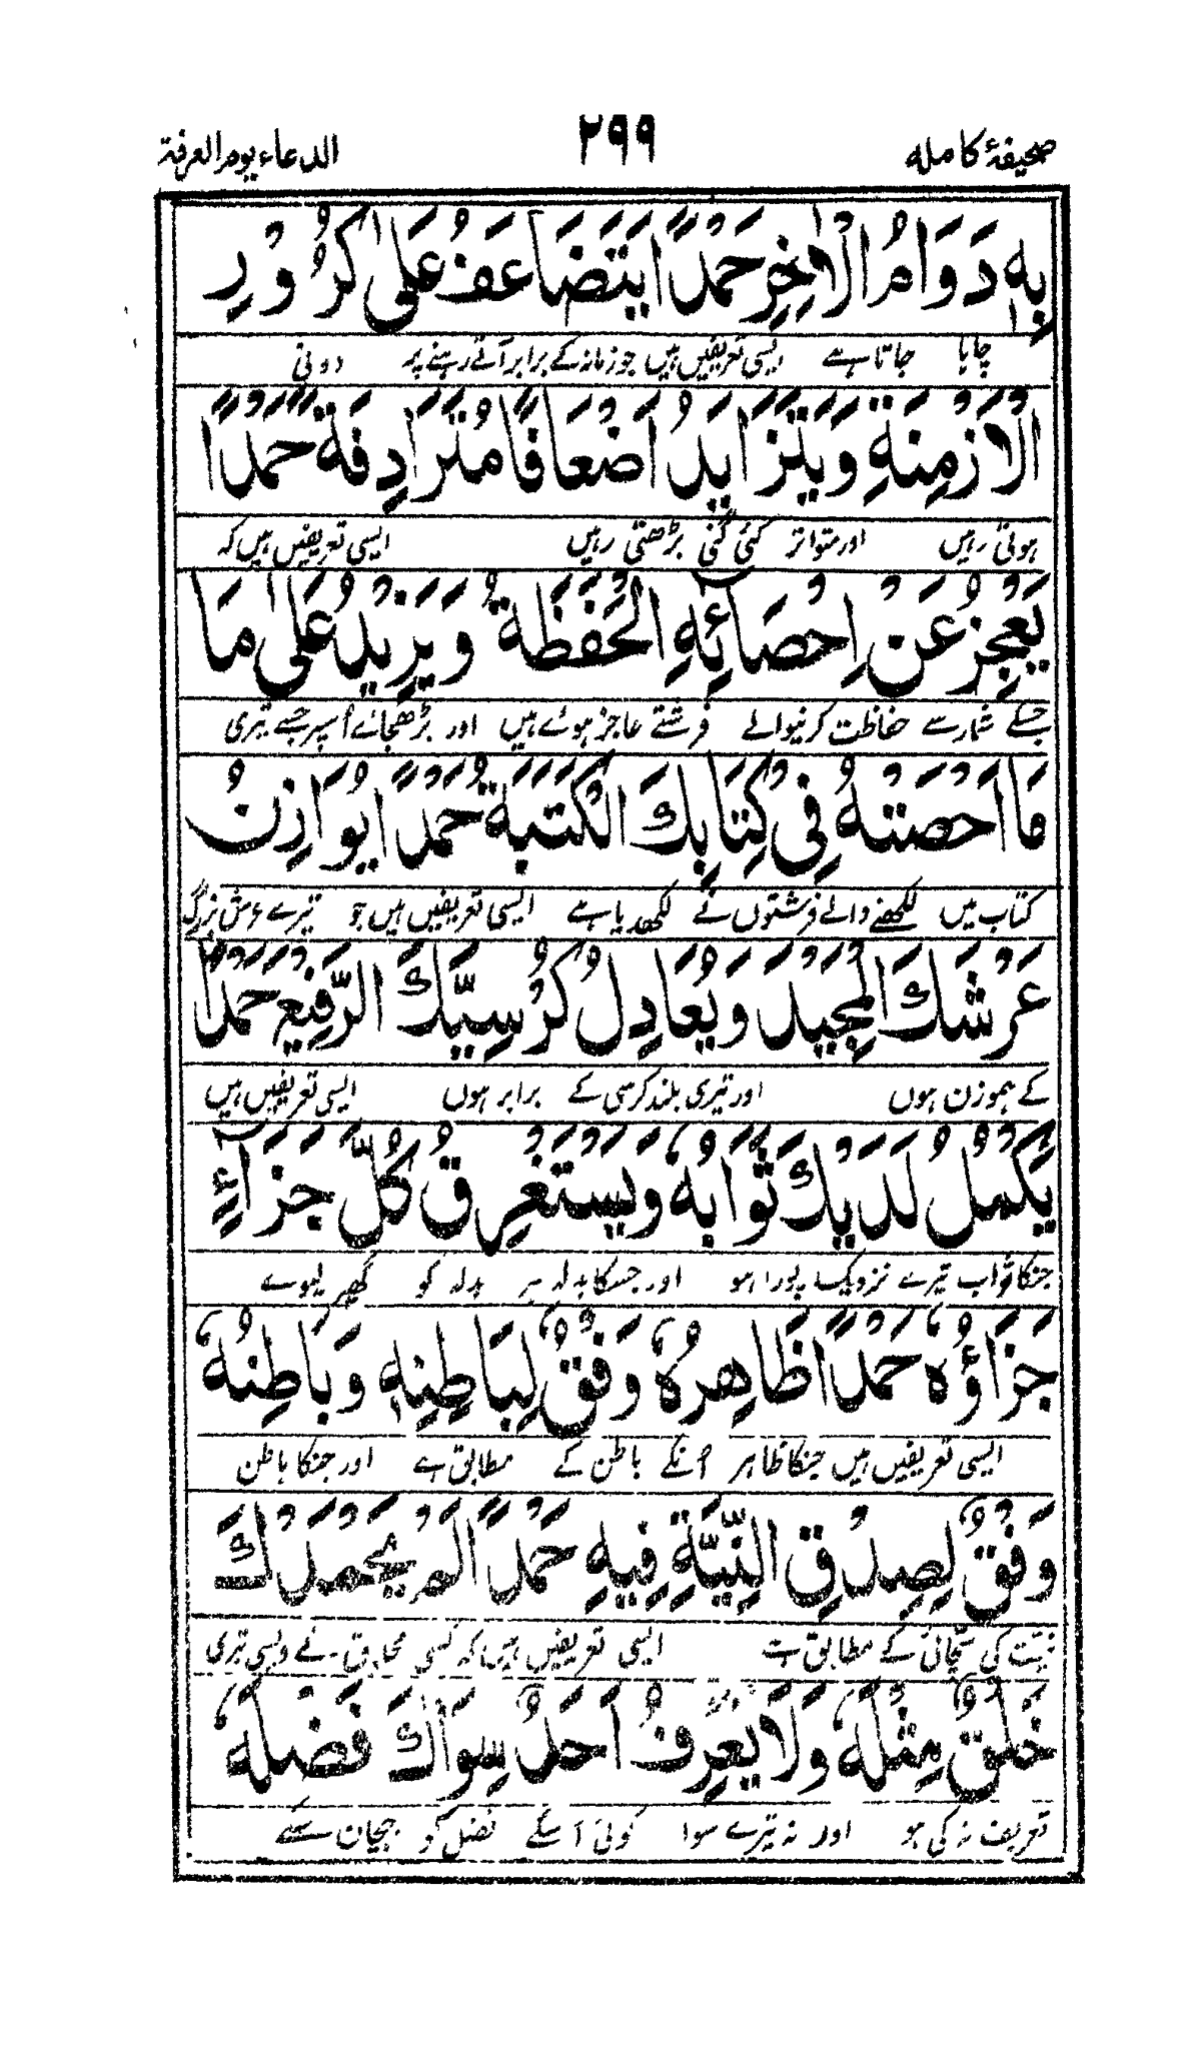 صحیفۂ کاملہ ۲۹۹ الدعاء یوم العرفۃ
بِهٖ دَوَامُ الْاٰخِرِ حَمْدًا يَتَضَاعَفُ عَلٰى كُرُوْرِ
چاہا جاتا ہے ایسی تعریفیں ہیں جو زمانہ کے برابر آتے رہنے پر دونی
الْاَزْمِنَةِ وَيَتَزَايَدُ اَضْعَافًا مُتَرَادِفَةً حَمْدًا
ہوتی رہیں اور متواتر کئی گنی بڑھتی رہیں ایسی تعریفیں ہیں کہ
يَعْجِزُ عَنْ اِحْصَآئِهِ الْحَفَظَةُ وَيَزِيْدُ عَلٰى مَا
جسکے شمار سے حفاظت کرنیوالے فرشتے عاجز ہوئے ہیں اور بڑھجائے اُسپر جسے تیری
مَا اَحْصَتْهُ فِيْ كِتَابِكَ الْكَتَبَةُ حَمْدًا يُوَازِنُ
کتاب میں لکھنے والے فرشتوں نے لکھدیا ہے ایسی تعریفیں ہیں جو تیرے عرش بزرگ
عَرْشَكَ الْمَجِيْدَ وَيُعَادِلُ كُرْسِيَّكَ الرَّفِيْعَ حَمْدًا
کے ہموزن ہوں اور تیری بلند کرسی کے برابر ہوں ایسی تعریفیں ہیں
يَكْمُلُ لَدَيْكَ ثَوَابُهٗ وَيَسْتَغْرِقُ كُلَّ جَزَآءٍ
جنکا ثواب تیرے نزدیک پورا ہو اور جسکا بدلہ ہر بدلہ کو گھیر لیوے
جَزَاؤُهٗ حَمْدًا ظَاهِرُهٗ وَفْقٌ لِبَاطِنِهٖ وَبَاطِنُهٗ
ایسی تعریفیں ہیں جنکا ظاہر اُنکے باطن کے مطابق ہے اور جنکا باطن
وَفْقٌ لِصِدْقِ النِّيَّةِ فِيْهِ حَمْدًا لَمْ يَحْمَدْكَ
نیّت کی سچّائی کے مطابق ہے ایسی تعریفیں ہیں کہ کسی مخلوق نے ویسی تیری
خَلْقٌ مِثْلَهٗ وَلَا يَعْرِفُ اَحَدٌ سِوَاكَ فَضْلَهٗ
تعریف نہ کی ہو اور نہ تیرے سوا کوئی اسکے فضل کو پہچان سکے